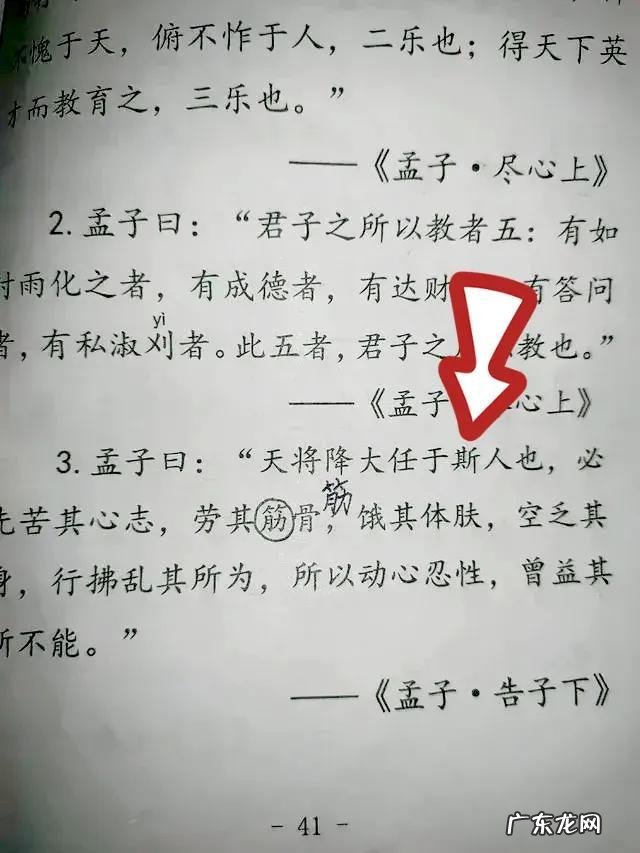 愧于天，俯不怍于人，二乐也；得天下英
才而教育之，三乐也。”
——《孟子·尽心上》
2. 孟子曰：“君子之所以教者五：有如
时雨化之者，有成德者，有达财 有答问
者，有私淑刈者。此五者，君子之 教也。”
yì
——《孟子 心上》
3. 孟子曰：“天将降大任于斯人也，必
先苦其心志，劳其筋骨，饿其体肤，空乏其
筋
身，行拂乱其所为，所以动心忍性，曾益其
所不能。”
——《孟子·告子下》
- 41 -
广东龙网